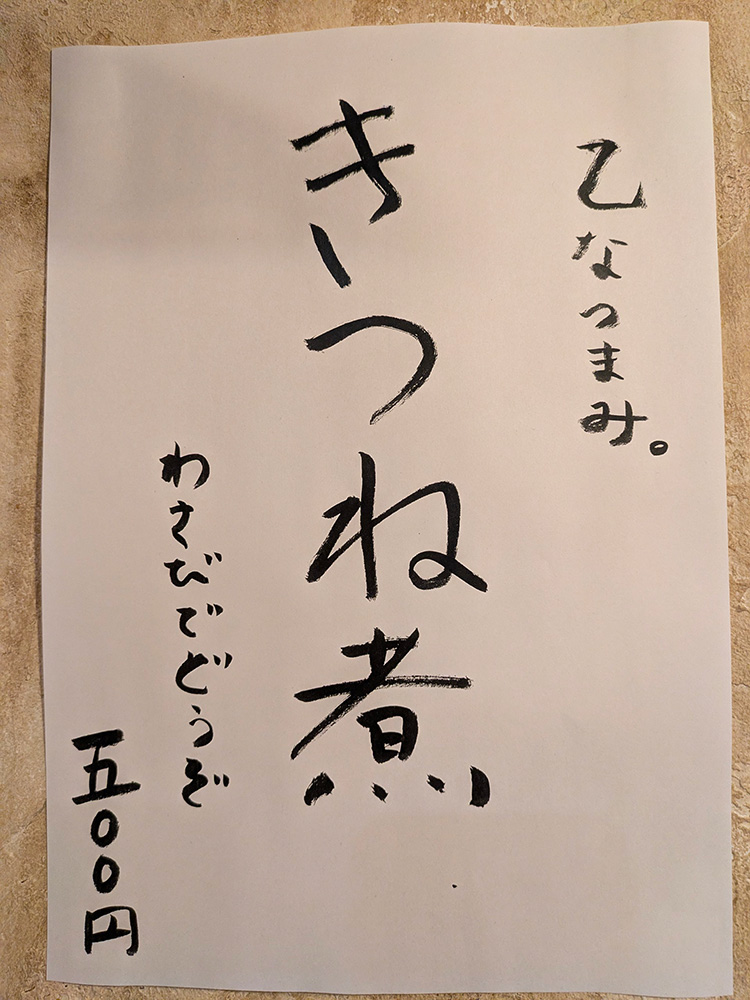 乙なつまみ。
きつね煮
わさびでどうぞ
五〇〇円